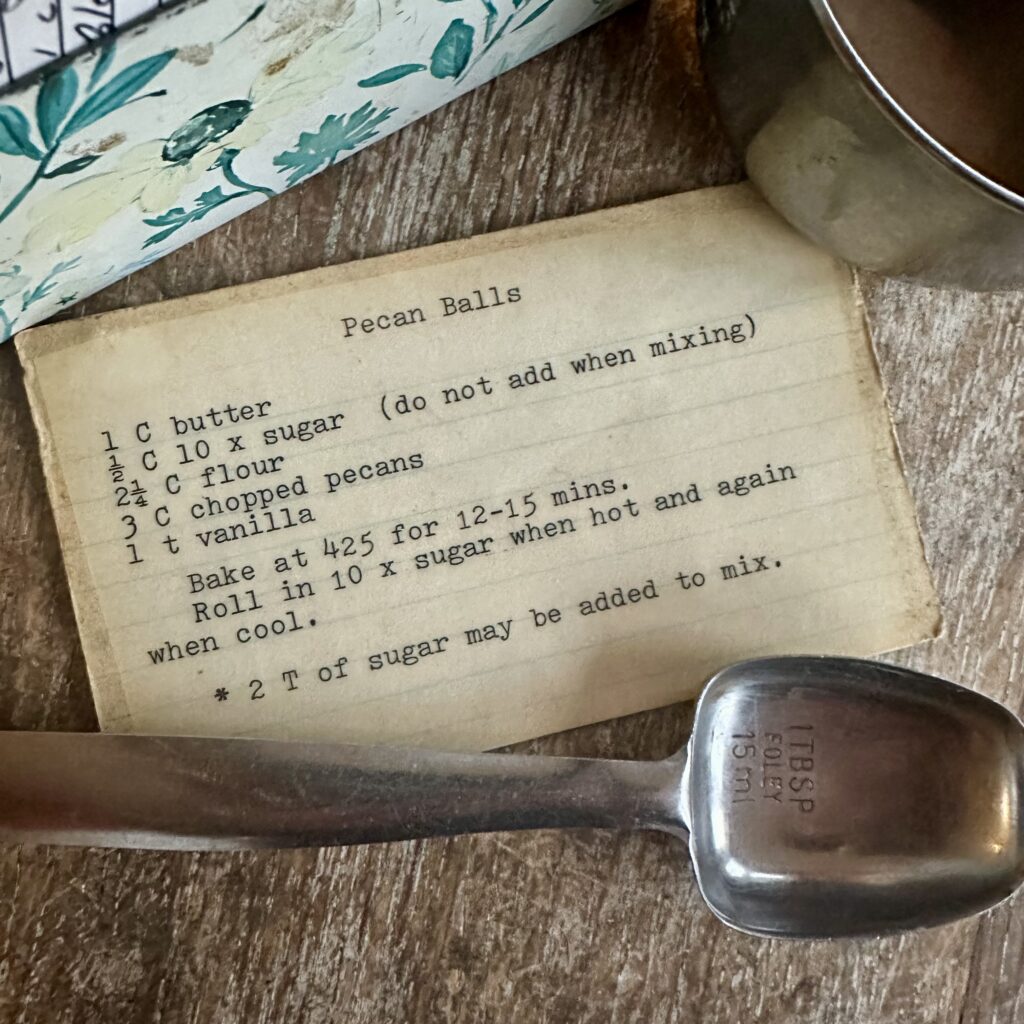 Pecan Balls
1 C butter
½ C 10 x sugar (do not add when mixing)
2¼ C flour
3 C chopped pecans
1 t vanilla
Bake at 425 for 12-15 mins.
Roll in 10 x sugar when hot and again
when cool.
* 2 T of sugar may be added to mix.
1TBSP
FOLEY
15 ml